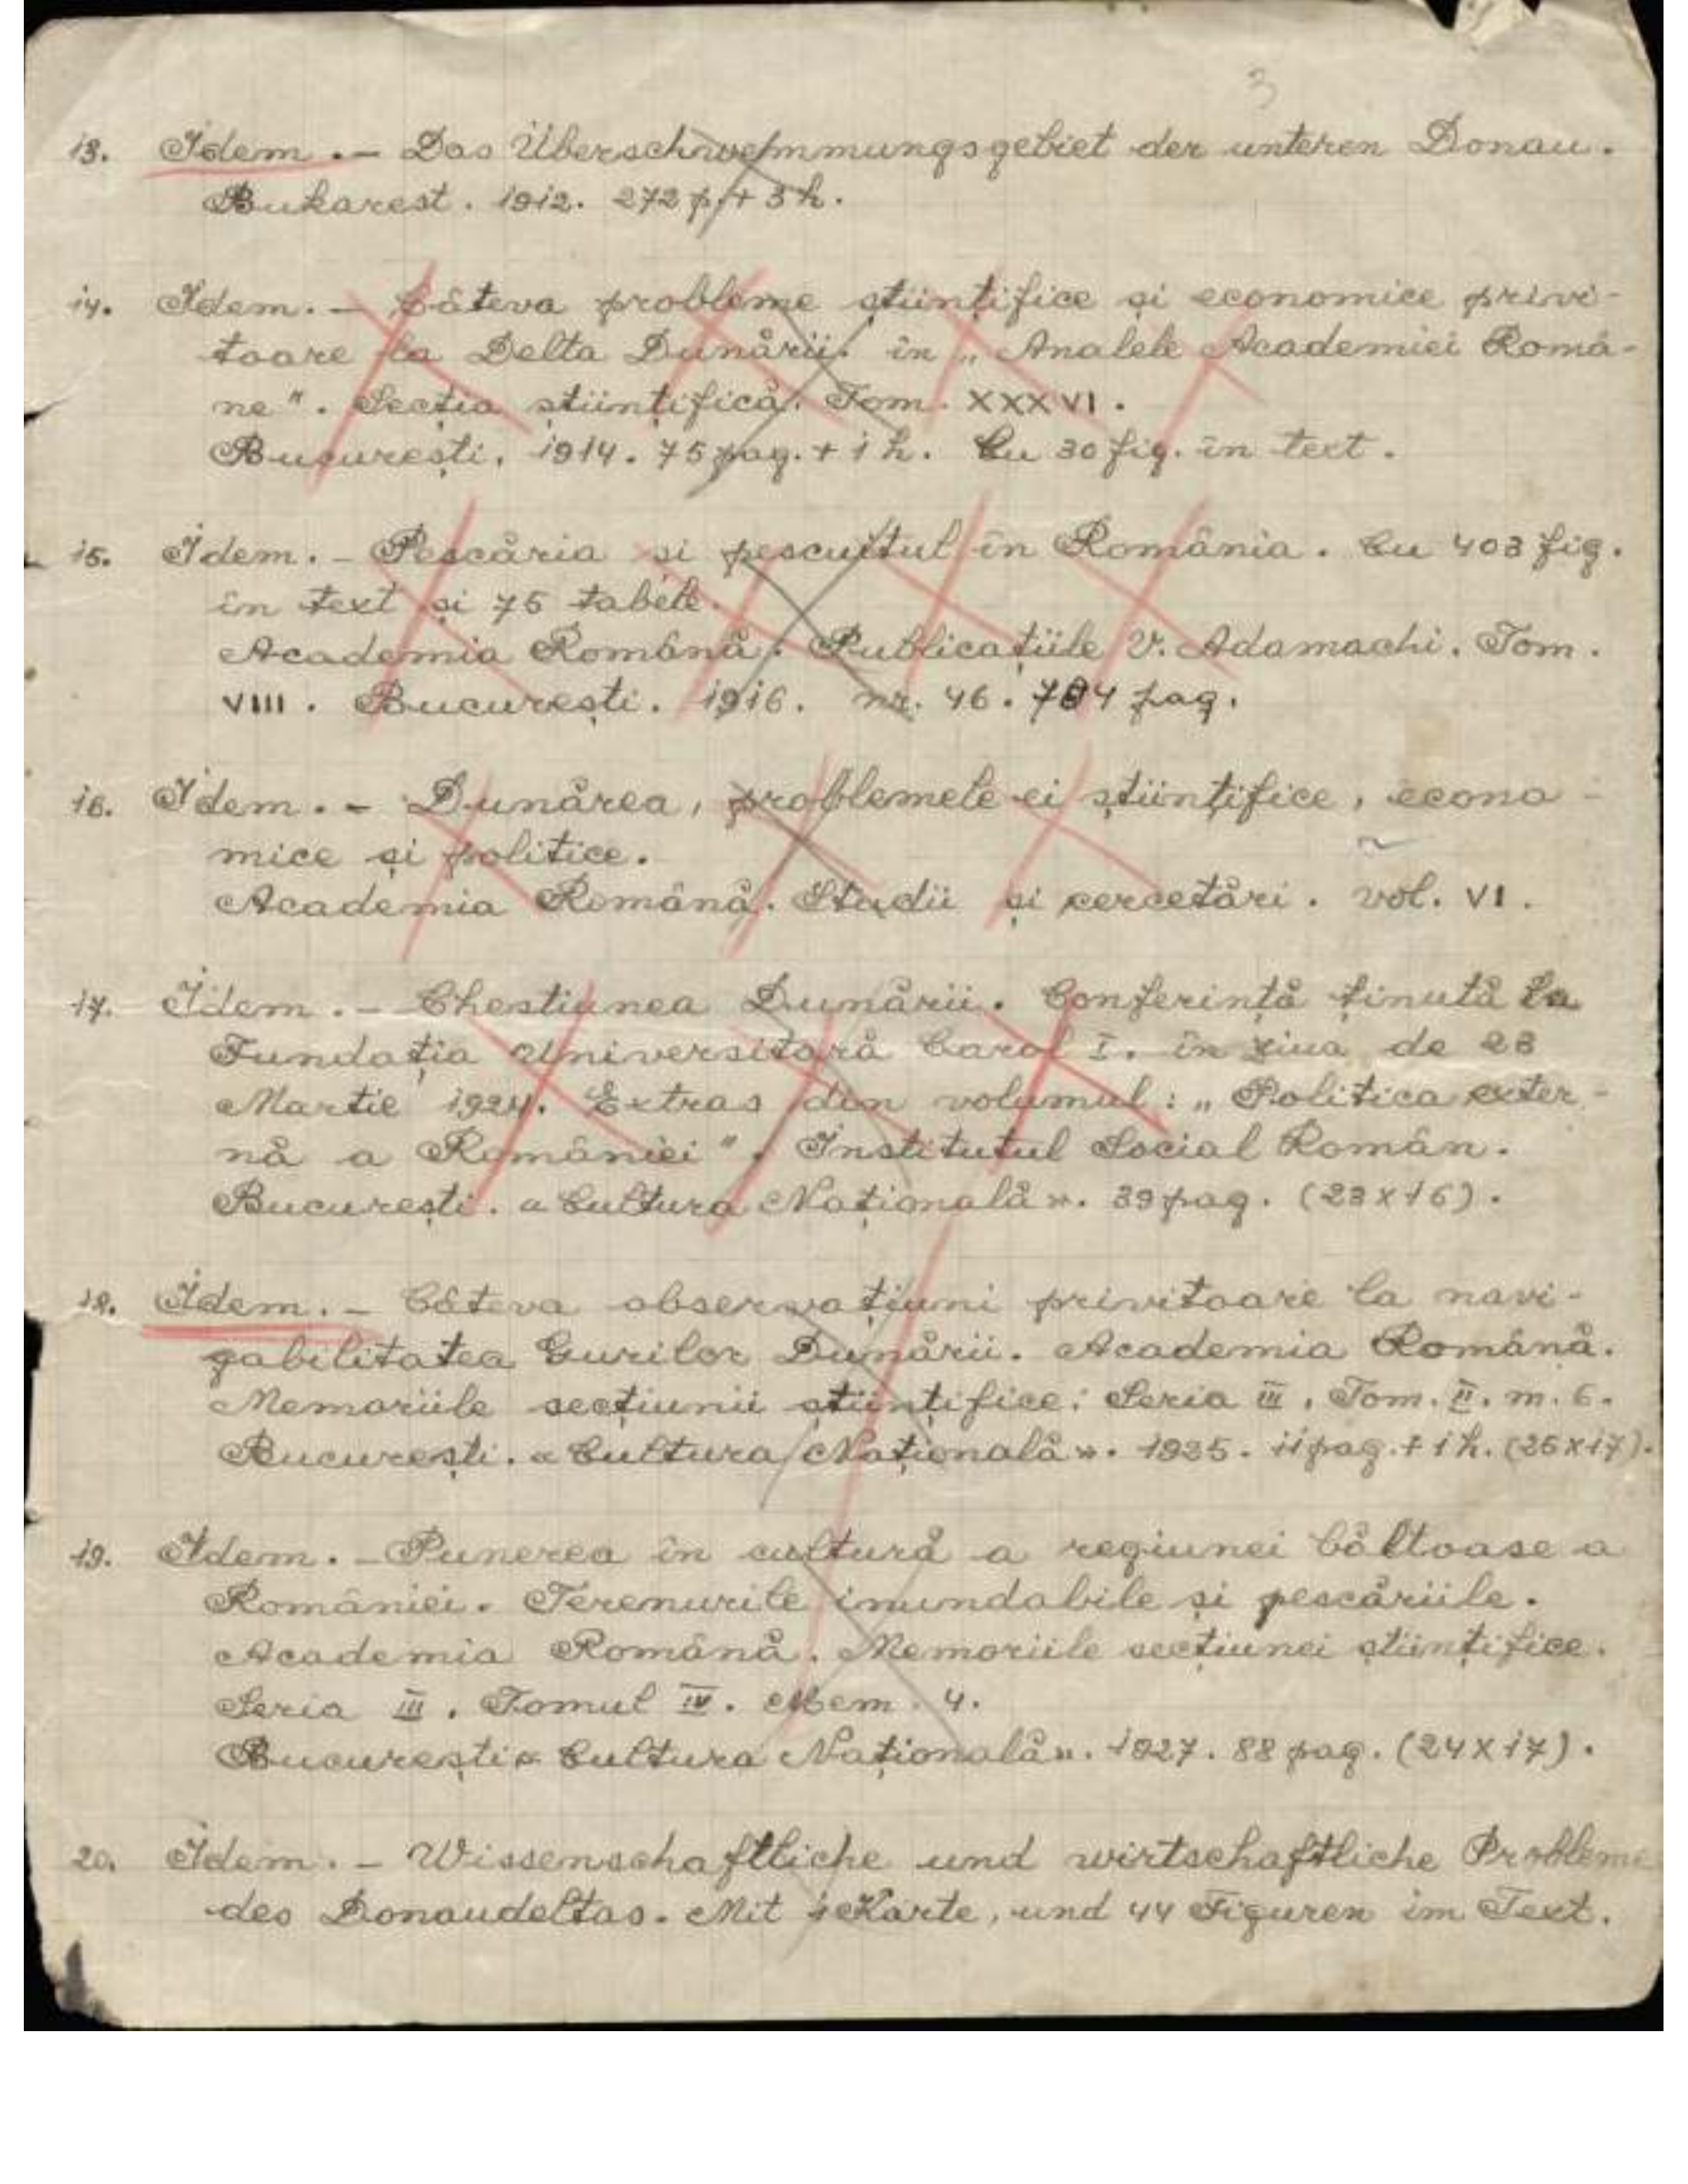 3
13. Idem. – Das Überschwemmungsgebiet der unteren Donau.
Bukarest. 1912. 272 p. + 3 h.
14. Idem. – Câteva probleme științifice și economice privi-
toare la Delta Dunării. în „Analele Academiei Româ-
ne". Secția științifică. Tom. XXXVI.
București. 1914. 75 pag. + 1 h. Cu 30 fig. în text.
15. Idem. – Pescăria și pescuitul în România. Cu 403 fig.
în text și 75 tabele.
Academia Română. Publicațiile V. Adamachi. Tom.
VIII. București. 1916. nr. 46. 794 pag.
16. Idem. – Dunărea, problemele ei științifice, econo-
mice și politice.
Academia Română. Studii și cercetări. vol. VI.
17. Idem. – Chestiunea Dunării. Conferință ținută la
Fundația Universitară Carol I. în ziua de 23
Martie 1924. Extras din volumul: „Politica exter-
nă a României". Institutul Social Român.
București. «Cultura Națională». 39 pag. (23x16).
18. Idem. – Câteva observațiuni privitoare la navi-
gabilitatea Gurilor Dunării. Academia Română.
Memoriile secțiunii științifice. Seria III. Tom. II. m. 6.
București. «Cultura Națională». 1925. 11 pag. + 1 h. (25x17).
19. Idem. – Punerea în cultură a regiunei băltoase a
României. Terenurile inundabile și pescăriile.
Academia Română. Memoriile secțiunei științifice.
Seria III. Tomul IV. Mem. 4.
București «Cultura Națională». 1927. 88 pag. (24x17).
20. Idem. – Wissenschaftliche und wirtschaftliche Probleme
des Donaudeltas. Mit 1 Karte, und 44 Figuren im Text.